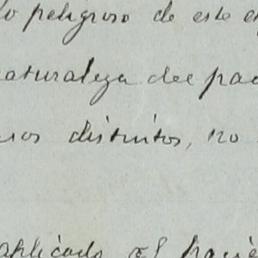 lo peligroso de este
naturaleza del
distintos, no
aplicado al